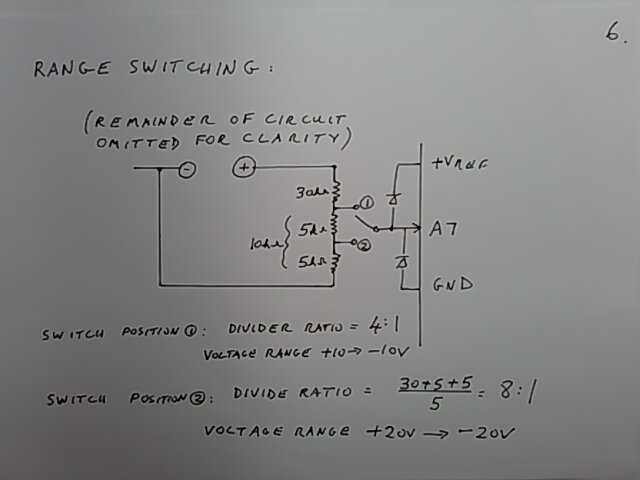 6.
RANGE SWITCHING:
(REMAINDER OF CIRCUIT
OMITTED FOR CLARITY)
- +
+VREF
30kΩ
①
5kΩ
A7
10kΩ
②
5kΩ
GND
SWITCH POSITION ①: DIVIDER RATIO = 4:1
VOLTAGE RANGE +10 → -10V
SWITCH POSITION ②: DIVIDE RATIO = 30+5+5 / 5 = 8:1
VOLTAGE RANGE +20V → -20V